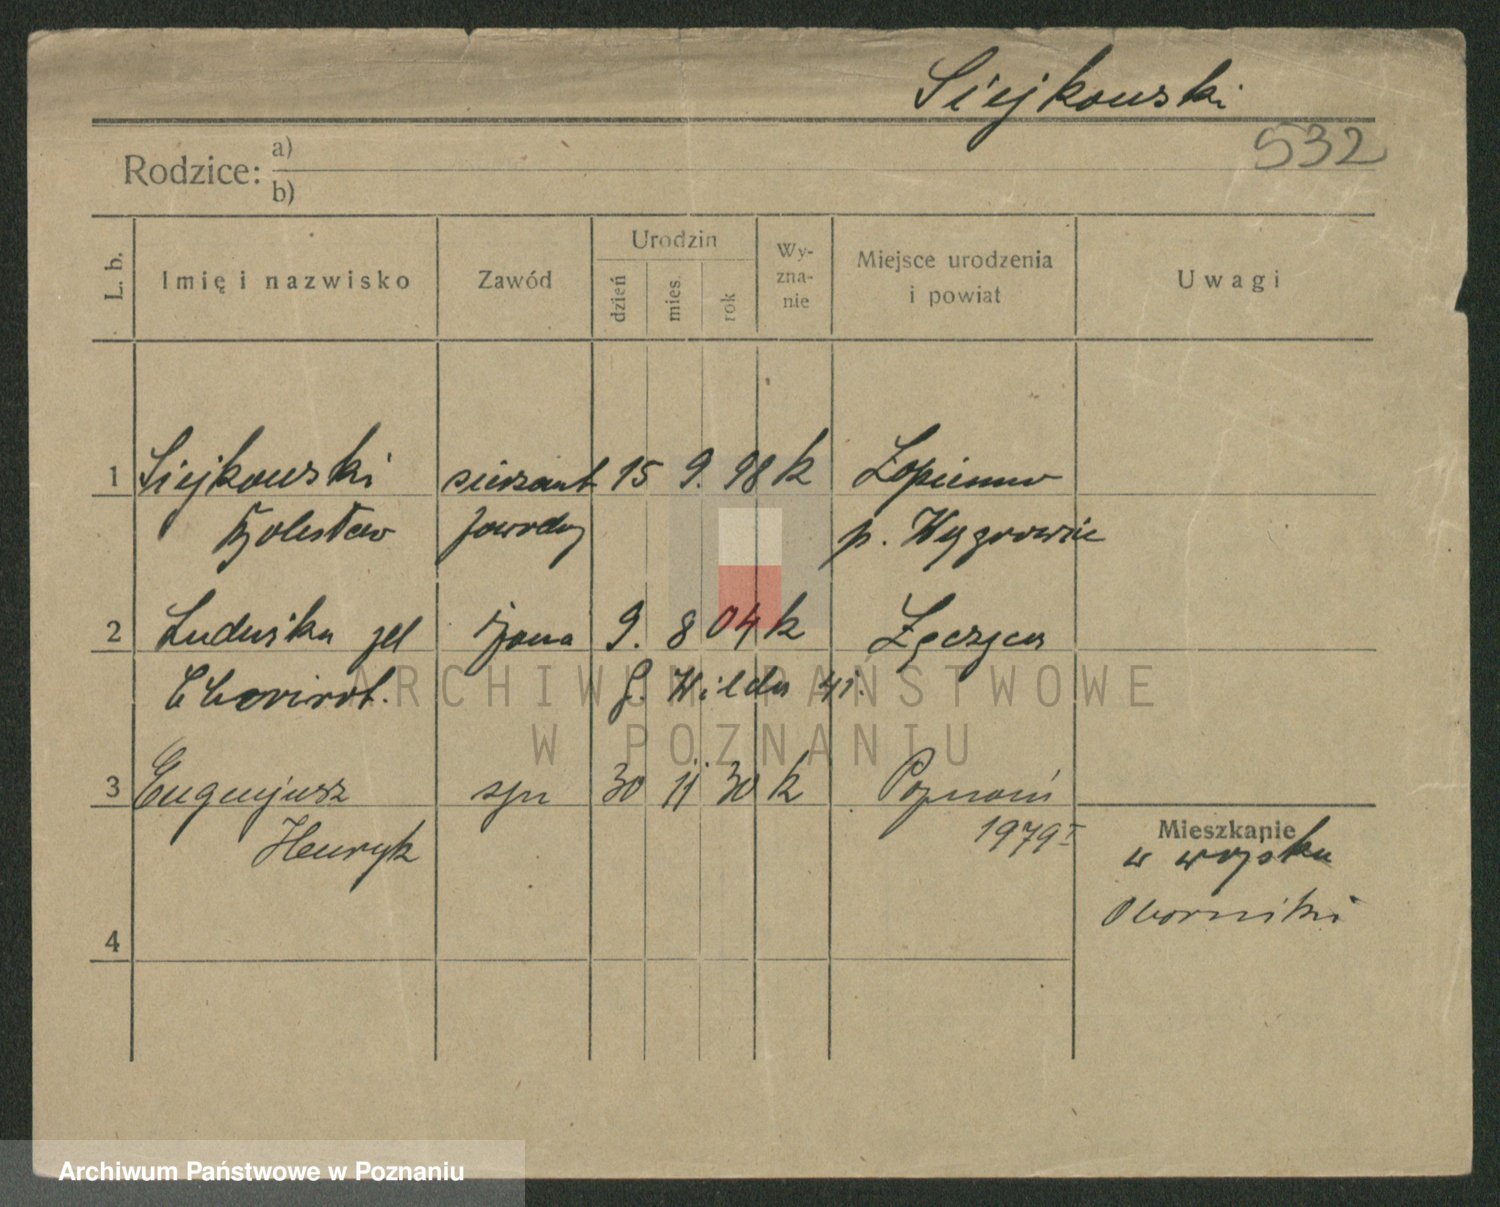 Siejkowski
532
Rodzice: a)
b)
L. b. Imię i nazwisko Zawód Urodzin dzień mies. rok Wy-zna-nie Miejsce urodzenia i powiat Uwagi
1 Siejkowski sierżant 15 9. 98 k Łopienno
Bolesław zawodny p. Wągrowiec
2 Ludwika żona 9. 8 04 k
G. Wilda 41.
3 Eugenjusz syn 30 11 30 k Poznań
Henryk 1979 I
Mieszkanie
w wojsku
Oborniki
4
ARCHIWUM PAŃSTWOWE
W POZNANIU
Archiwum Państwowe w Poznaniu